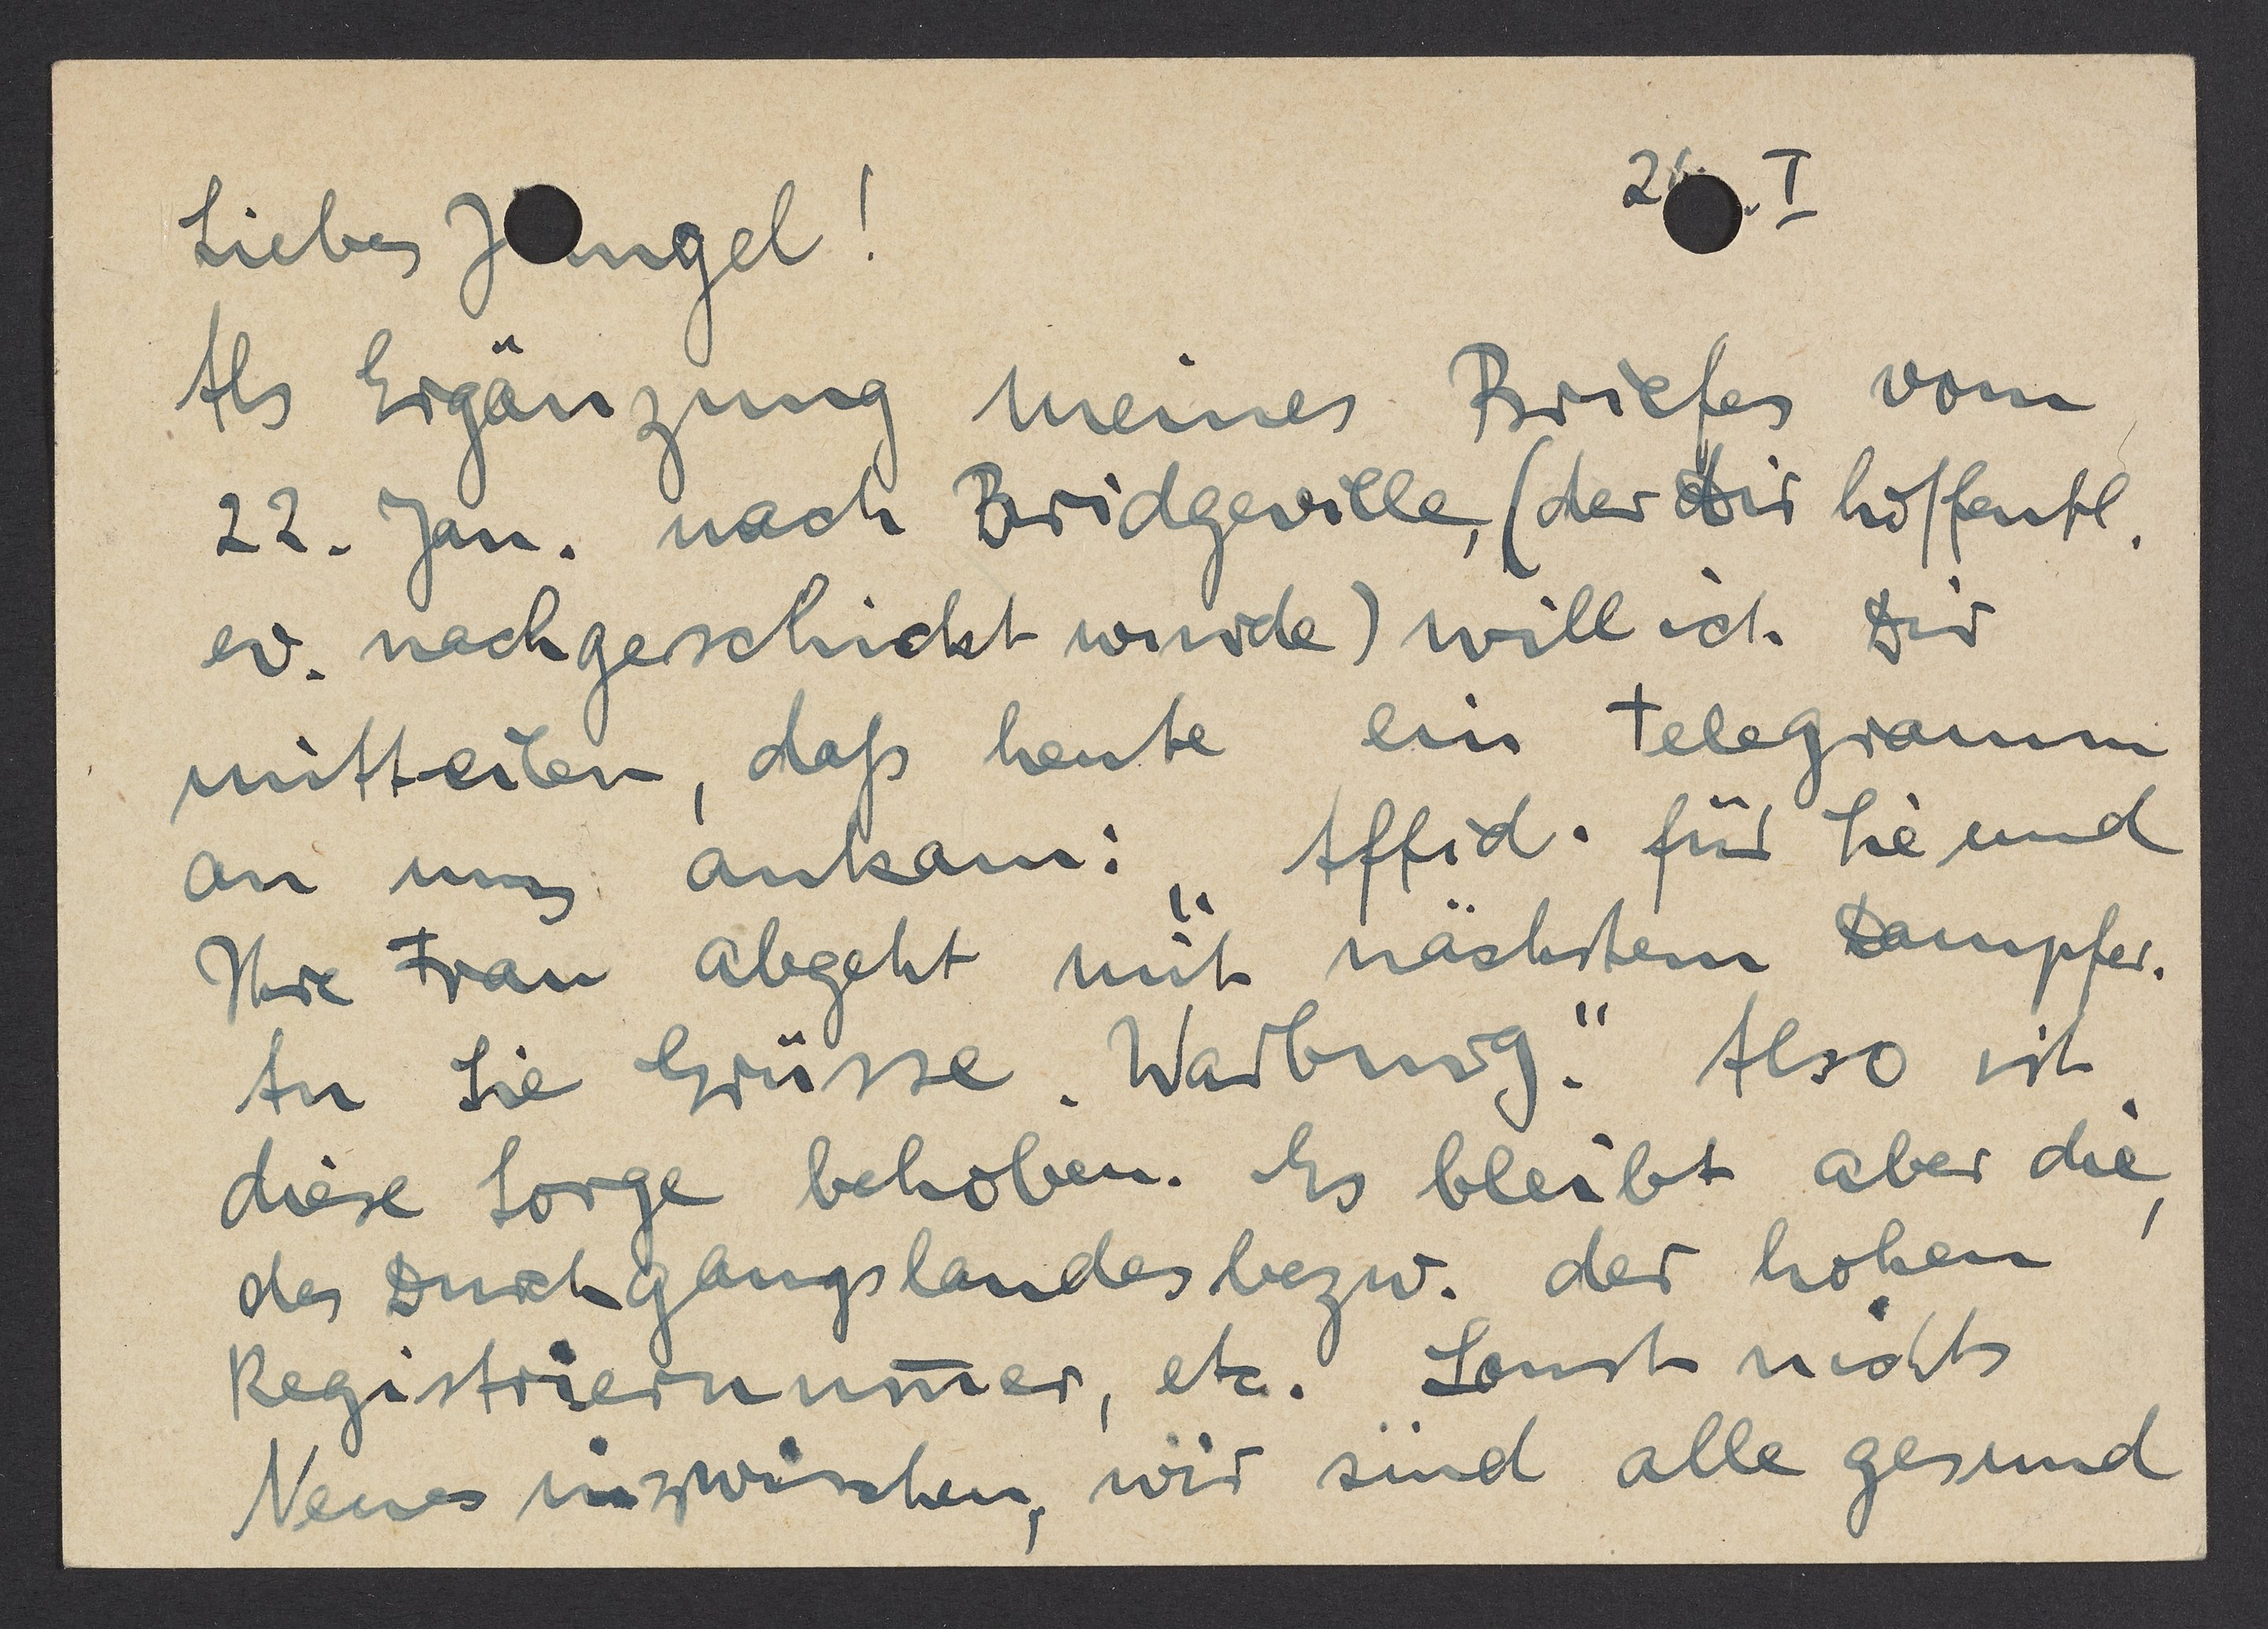 26.I
Liebes Jungel!
Als Ergänzung meines Briefes vom
22. Jan. nach Bridgeville, (der Dir hoffentl.
ev. nachgeschickt wurde) will ich Dir
mitteilen, daß heute ein Telegramm
an uns ankam: „Affid. für Sie und
Ihre Frau abgeht mit nächstem Dampfer.
An Sie Grüsse. Warburg." Also ist
diese Sorge behoben. Es bleibt aber die,
des Durchgangslandes bezw. der hohen
Registriernum̄er, etc. Sonst nichts
Neues inzwischen, wir sind alle gesund